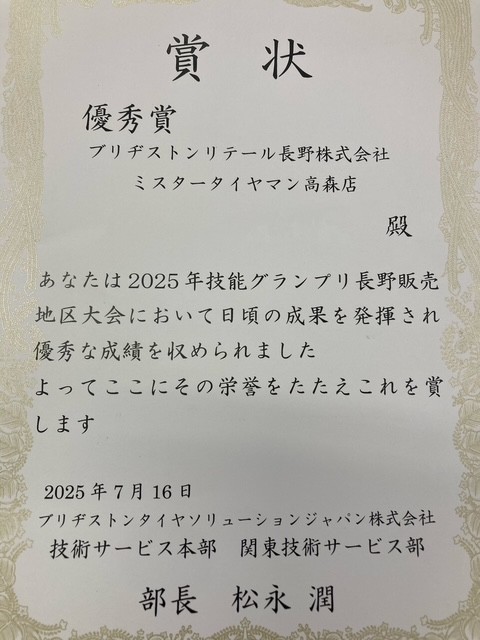 賞 状
優秀賞
ブリヂストンリテール長野株式会社
ミスタータイヤマン高森店
殿
あなたは2025年技能グランプリ長野販売
地区大会において日頃の成果を発揮され
優秀な成績を収められました
よってここにその栄誉をたたえこれを賞
します
2025年7月16日
ブリヂストンタイヤソリューションジャパン株式会社
技術サービス本部 関東技術サービス部
部長 松永 潤